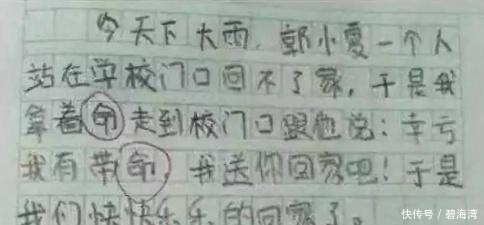 今天下大雨,郭小雯一个人
站在学校门口回不了家,于是我
拿着命走到校门口跟他说:幸亏
我有带命,我送你回家吧!于是
我们快快乐乐的回家了。
快传号/碧海湾